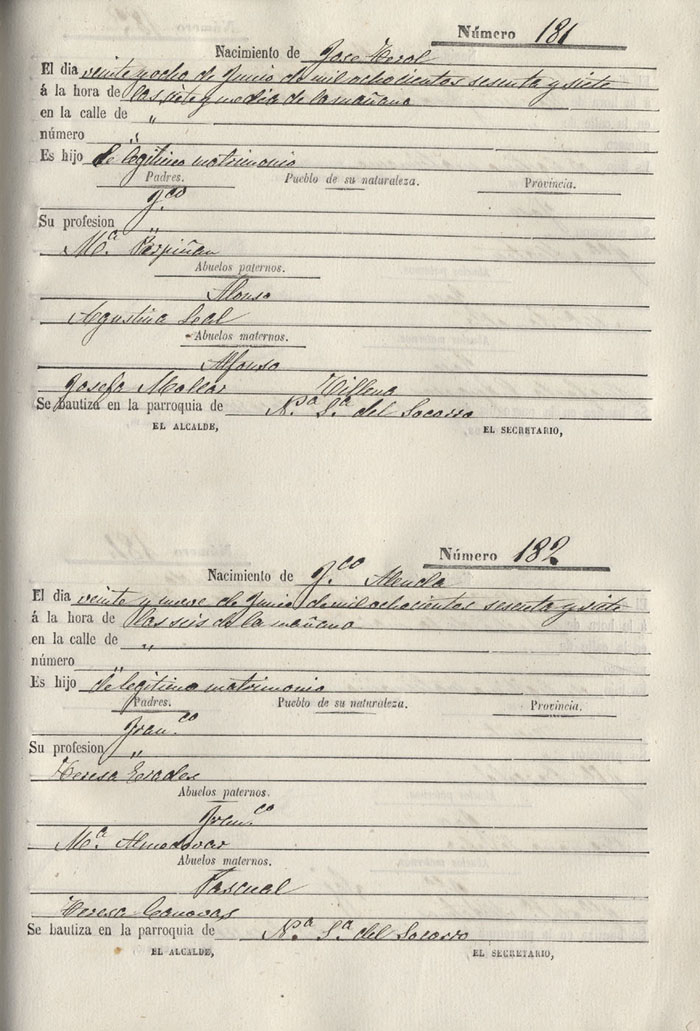 Número 181
Nacimiento de Jose Herol
El dia veinte y ocho de Junio de mil ochocientos sesenta y siete
á la hora de las siete y media de la mañana
en la calle de "
número "
Es hijo de legitimo matrimonio
Padres. Pueblo de su naturaleza. Provincia.
Fco
Su profesion "
Mª Perpiñan
Abuelos paternos.
Alonso
Agustina Leal
Abuelos maternos.
Alfonso
Josefa Mollar Villena
Se bautiza en la parroquia de Nª Sª del Socorro
EL ALCALDE, EL SECRETARIO,
Número 182
Nacimiento de Fco
El dia veinte y nueve de Junio de mil ochocientos sesenta y siete
á la hora de las seis de la mañana
en la calle de "
número "
Es hijo de legitimo matrimonio
Padres. Pueblo de su naturaleza. Provincia.
Franco
Su profesion "
Teresa
Abuelos paternos.
Franco
Mª Almodovar
Abuelos maternos.
Pascual
Teresa Canovas
Se bautiza en la parroquia de Nª Sª del Socorro
EL ALCALDE, EL SECRETARIO,